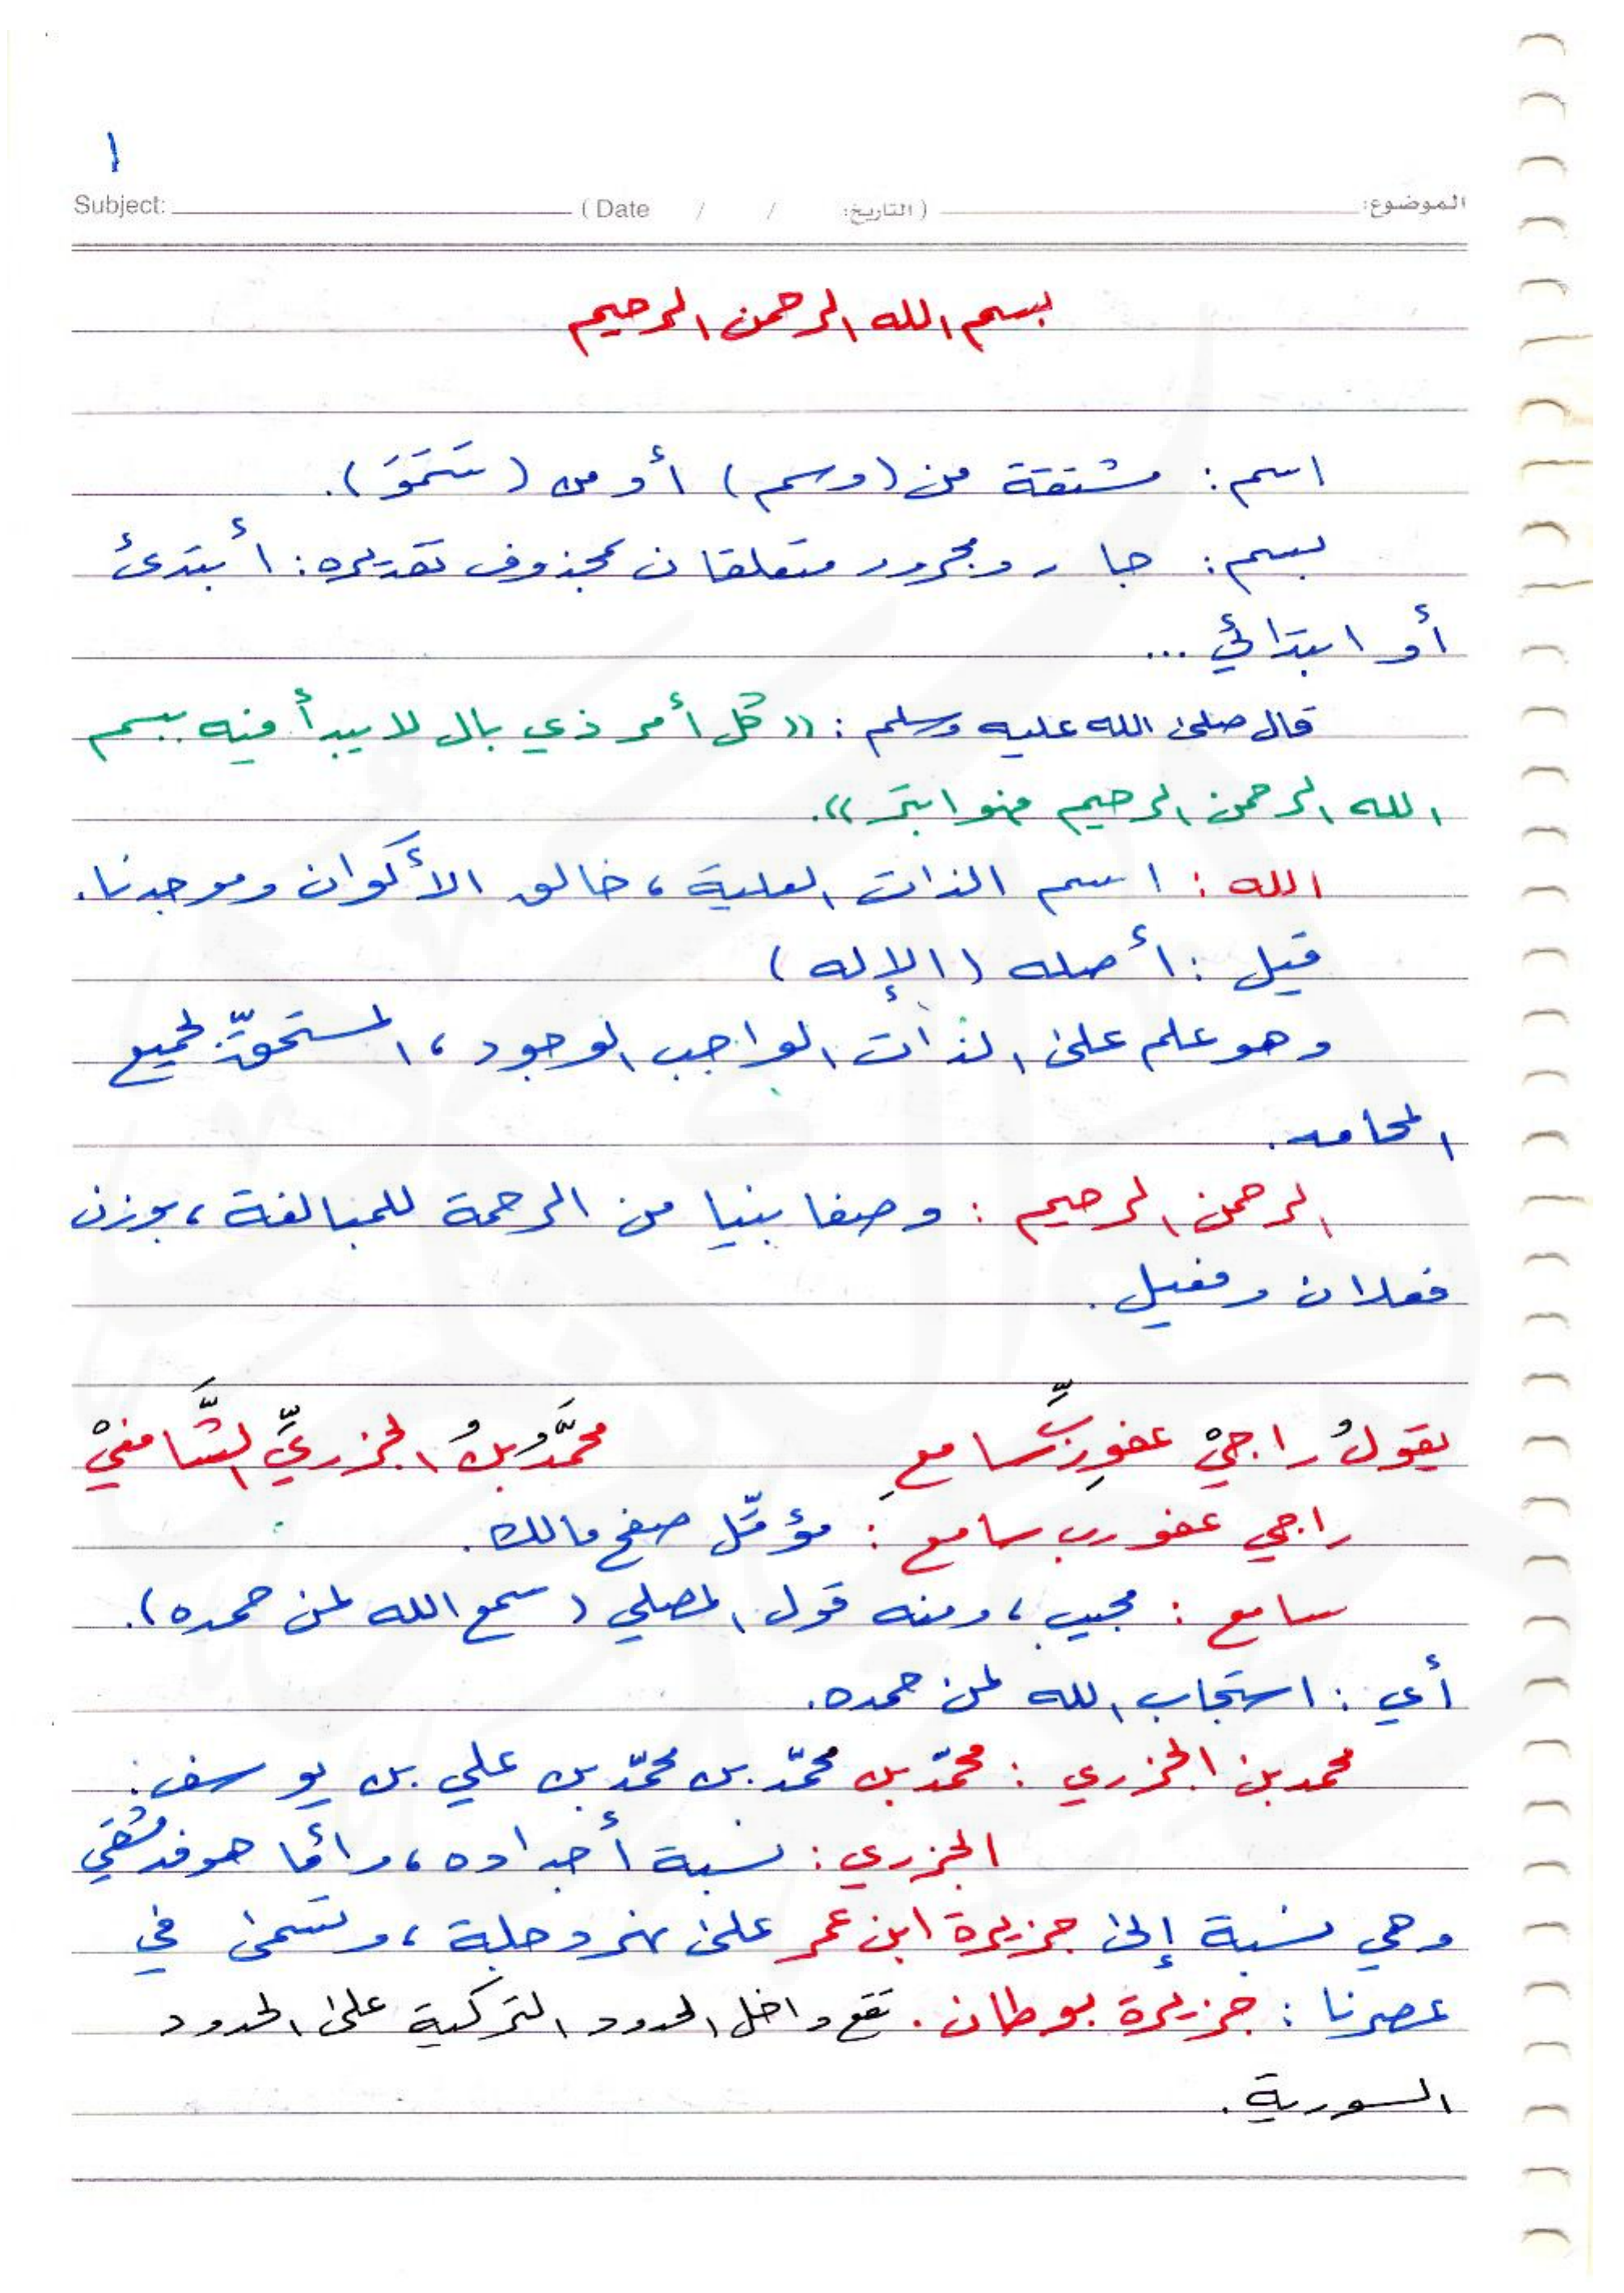 ١
Subject: (Date / / التاريخ:) الموضوع:
بسم الله الرحمن الرحيم
اسم: مشتقة من (وسم) أو من (سَمَوَ).
بسم: جار ومجرور متعلقان بمحذوف تقديره: أبتدئ
أو ابتدائي ...
قال صلى الله عليه وسلم: ((كل أمر ذي بال لا يبدأ فيه ببسم
الله الرحمن الرحيم فهو ابتر)).
الله: اسم الذات العلية، خالق الأكوان وموجدنا.
قيل: أصله (الإله)
وهو علم على الذات الواجب الوجود، المستحقّ لجميع
المحامد.
الرحمن الرحيم: وصفا بنيا من الرحمة للمبالغة، بوزن
فعلان وفعيل.
يقولُ راجيْ عفوِ ربٍّ سامعِ محمَّدُ بنُ الجزريِّ الشَّافعيْ
راجي عفو رب سامع: مؤمّل صفح مالك.
سامع: مجيب، ومنه قول المصلي (سمع الله لمن حمده).
أي: استجاب الله لمن حمده.
محمد بن الجزري: محمّد بن محمّد بن محمّد بن علي بن يوسف.
الجزري: نسبة أجداده، وأمّا هو فدمشقي
وهي نسبة إلى جزيرة ابن عمر على نهر دجلة، وتسمى في
عصرنا: جزيرة بوطان. تقع داخل الحدود التركية على الحدود
السورية.